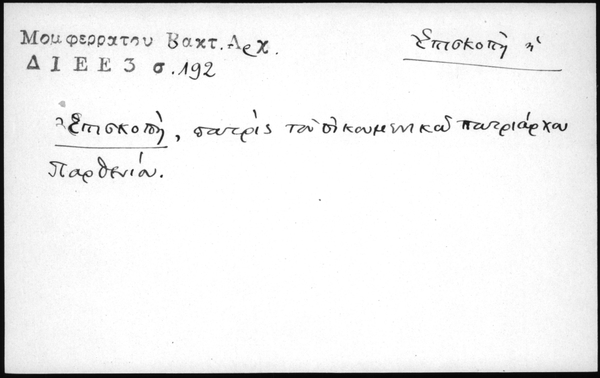 Μομφερρατου Βακτ. Αρχ.
Δ Ι Ε Ε 3 σ. 192
Ἐπισκοπὴ ἡ
Ἐπισκοπὴ, πατρὶς τοῦ οἰκουμενικοῦ πατριάρχου
Παρθενίου.